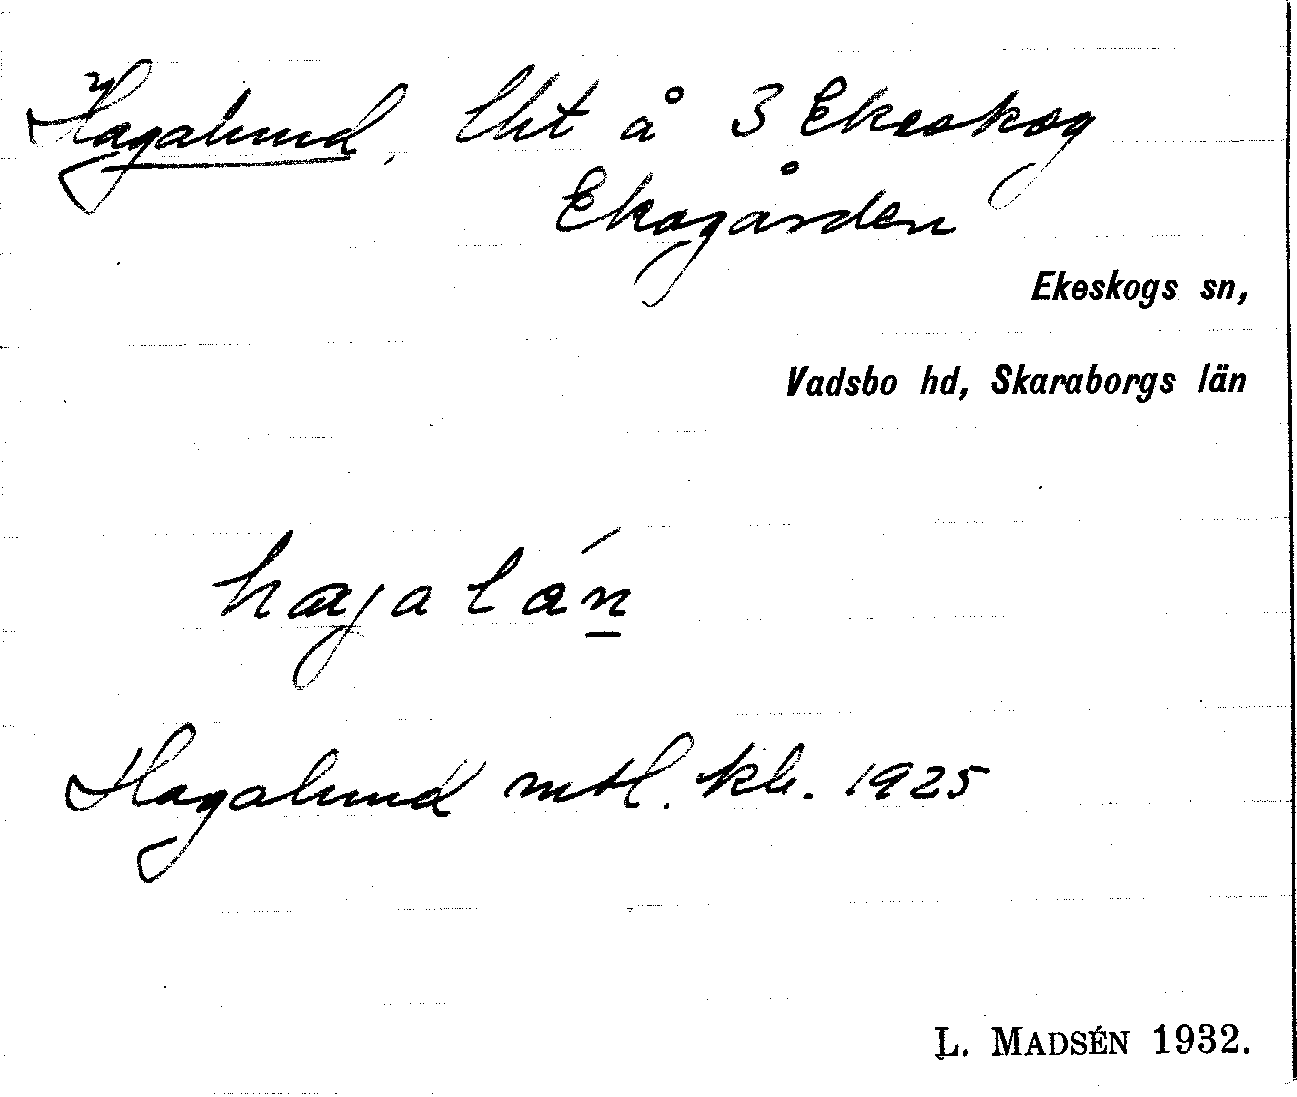 Hagalund, lht å 3 Ekeskog
Ekagården
Ekeskogs sn,
Vadsbo hd, Skaraborgs län
Hagalund mtl. kb. 1925
L. MADSÉN 1932.